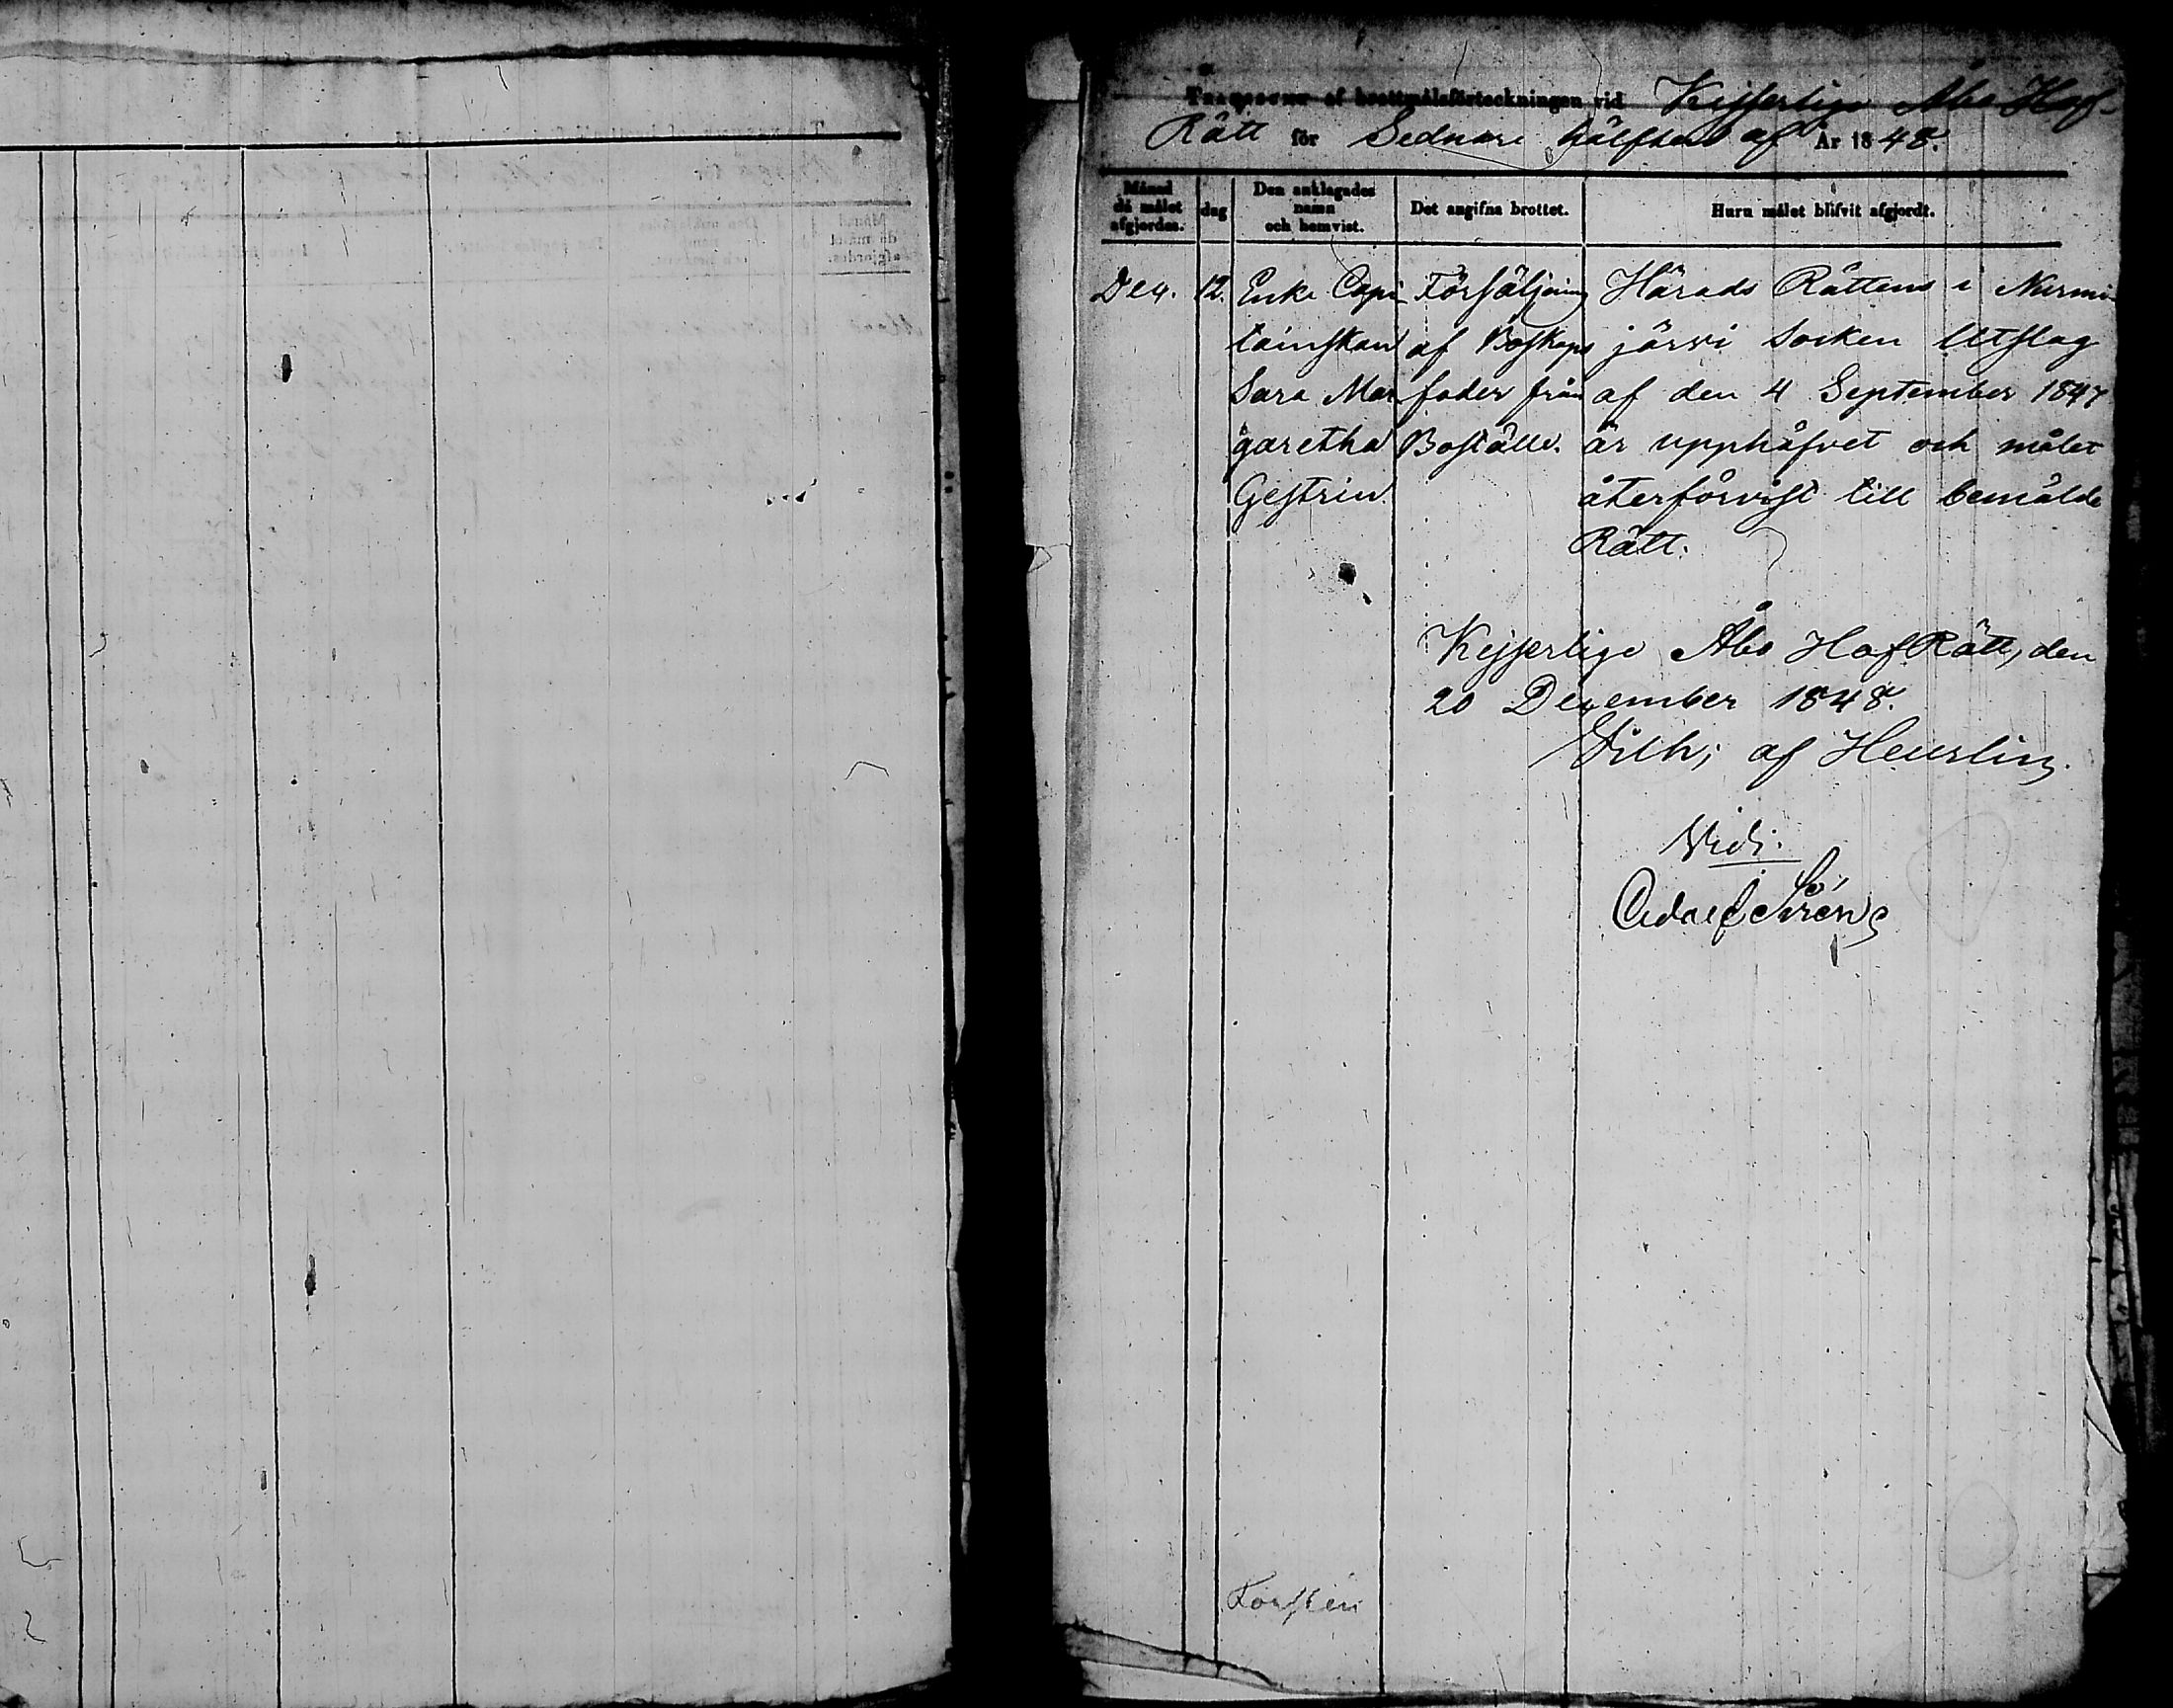 Transsumt af brottmålsförteckningen vid Kejserlige Åbo Hof-
Rätt för Sednare hälften af År 1848.
Månad
då målet
afgjordes.
dag
Den anklagades
namn
och hemvist.
Det angifna brottet.
Huru målet blifvit afgjordt.
Dec. 12. Enke Capi- Försäljning Härads Rättens i Nurmi-
tainskan af Boskaps järvi Socken Utslag
Sara Mar- foder från af den 4 September 1847
garetha Boställe. är upphäfvet och målet
Gestrin. återförvist till bemälde
Rätt.
Kejserlige Åbo HofRätt, den
20 December 1848.
Wilh; af Heurling.
Vidi.
Adolf Sirén